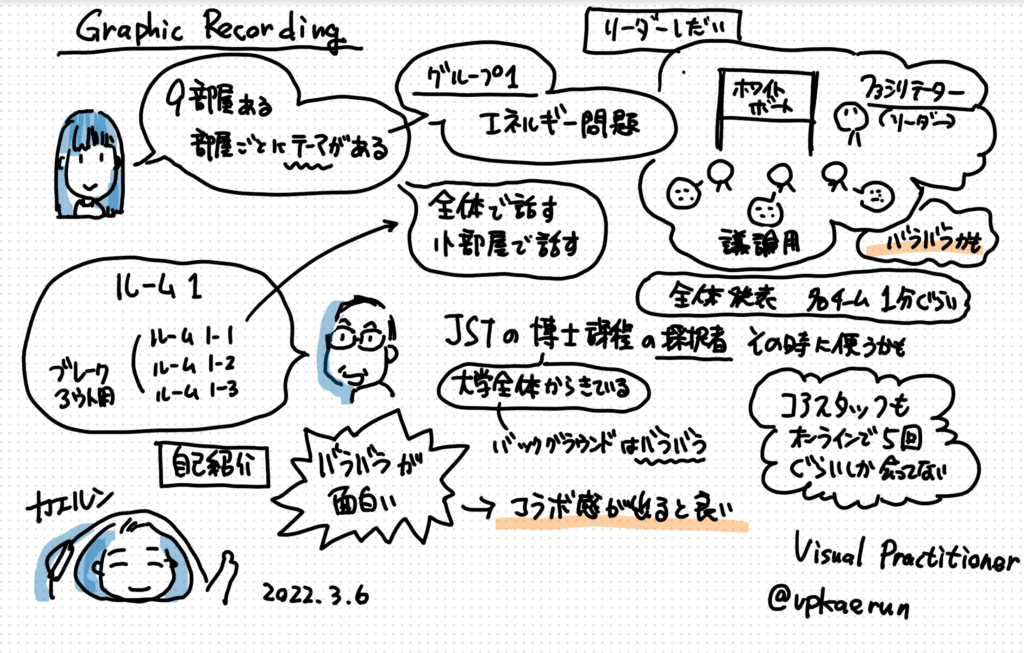 Graphic Recording.
リーダーしだい
9部屋ある
部屋ごとにテーマがある
グループ1
エネルギー問題
ホワイト
ボート
ファシリテーター
(リーダー)
議論用
バラバラかも
全体で話す
小部屋で話す
全体発表 各チーム 1分ぐらい
その時に使うかも
ルーム1
ブレーク
アウト用
ルーム 1-1
ルーム 1-2
ルーム 1-3
JSTの博士課程の採択者
大学全体からきている
バックグラウンドはバラバラ
コアスタッフも
オンラインで5回
ぐらいしか会ってない
自己紹介
バラバラが
面白い
→コラボ感が出ると良い
カエルン
2022.3.6
Visual Practitioner
@vpkaerun